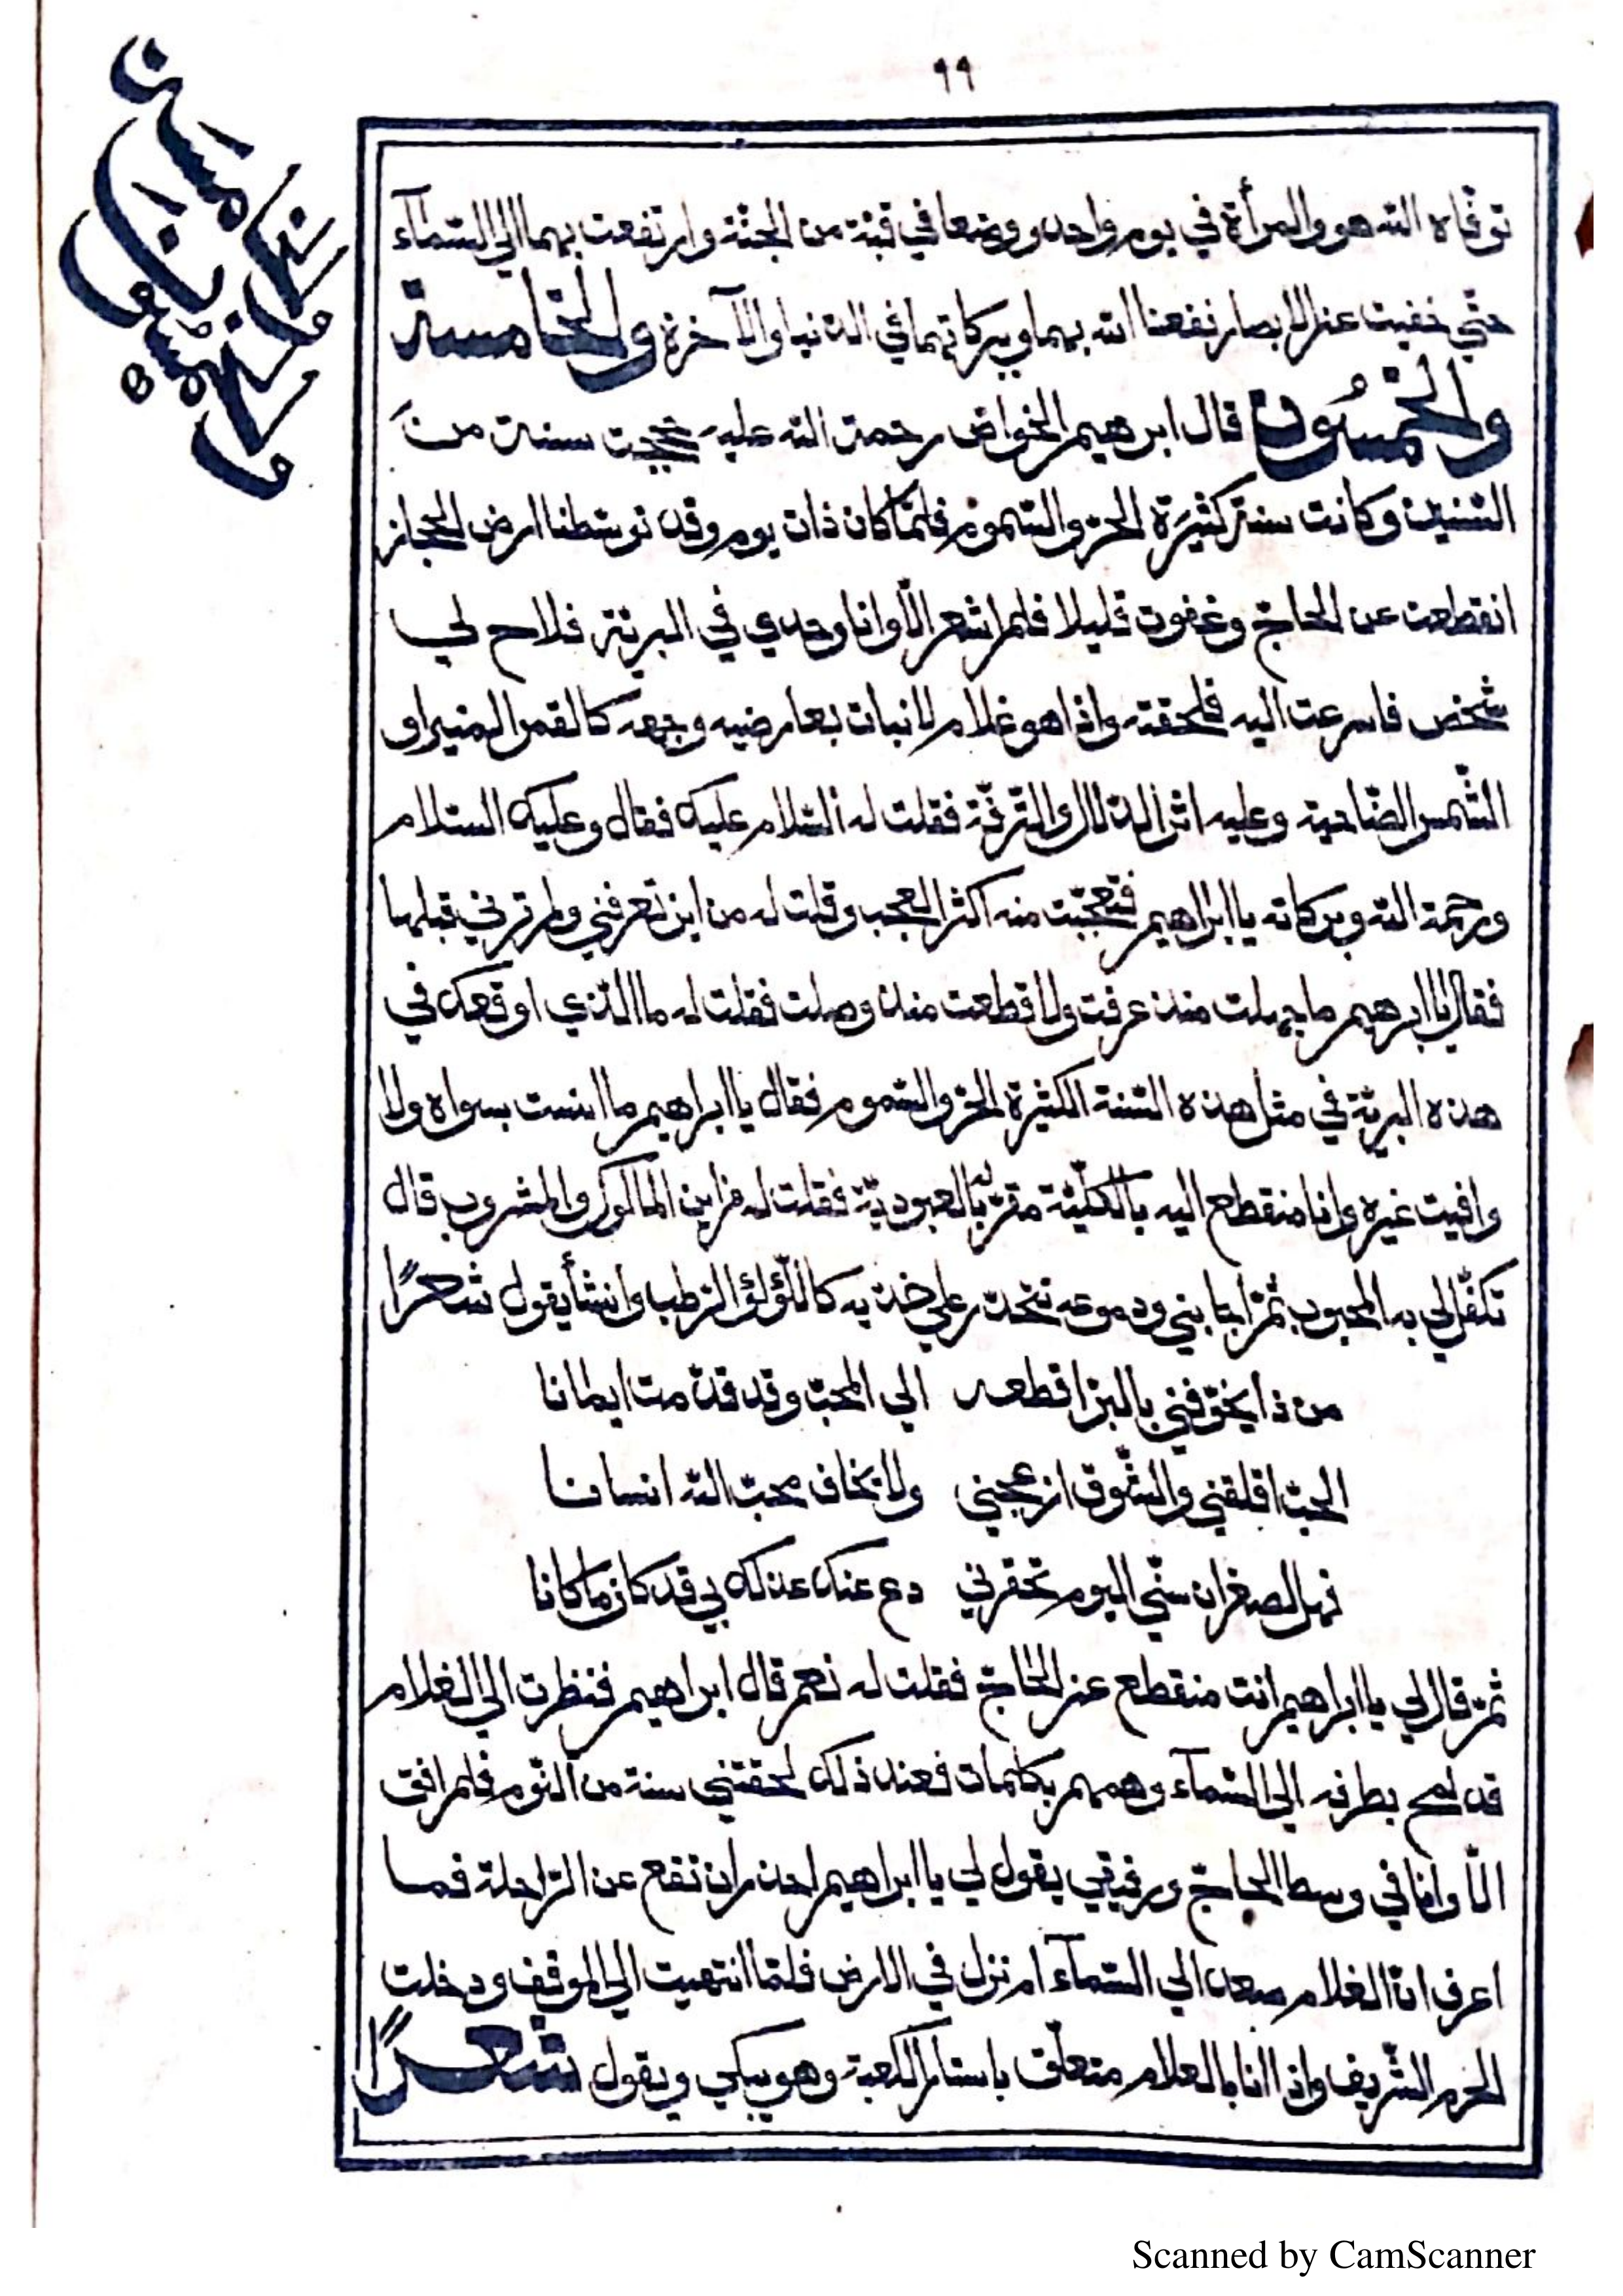 ٩٩
الخامسة والخمسون
توفاه الله هو والمرأة في يوم واحد ووضعا في قبة من الجنة وارتفعت بهما الى السمآء
حتي خفيت عن الابصار نفعنا الله بهما وبركاتهما في الدنيا والآخرة والخامسة
والخمسون قال ابرهيم الخواص رحمة الله عليه حججت سنة من
السنين وكانت سنة كثيرة الحر والسموم فلما كان ذات يوم وقد توسطنا ارض الحجاز
انقطعت عن الحاج وغفوت قليلا فلم اشعر الا وانا وحدي في البرية فلاح لي
شخص فاسرعت اليه فلحقته واذا هو غلام لا نبات بعارضيه وجهه كالقمر المنير او
الشمس الضاحية وعليه اثر الدلال والترفة فقلت له السلام عليك فقال وعليك السلام
ورحمة الله وبركاته يا ابراهيم فتعجبت منه اكثر العجب وقلت له من اين تعرفني ولم ترني قبلها
فقال يا ابرهيم ما جهلت منذ عرفت ولا قطعت منذ وصلت فقلت له ما الذي اوقعك في
هذه البرية في مثل هذه السنة الكثيرة الحر والسموم فقال يا ابراهيم ما انست بسواه ولا
وافيت غيره وانا منقطع اليه بالكلية مقر له بالعبودية فقلت له من اين المأكول والمشروب قال
تكفل لي به المحبوب ثم اجابني ودموعه تتحدر علي خديه كاللؤلؤ الرطب وانشأ يقول شعرًا
من ذا يخوفني بالبر اقطعه الي المحب وقد قدمت ايمانا
الحب اقلقني والشوق ازعجني ولا يخاف محب الله انسانا
فهل لصغران سني اليوم تحقرني دع عنك عذلك بي قد كان ما كانا
ثم قال لي يا ابراهيم انت منقطع عن الحاج فقلت له نعم قال ابراهيم فنظرت الي الغلام
قد لمح بطرفه الي السمآء وهمهم بكلمات فعند ذلك لحقتني سنة من النوم فلم افق
الا وانا في وسط الحاج ورفيقي يقول لي يا ابراهيم احذر ان تقع عن الراحلة فما
اعرف ان الغلام صعد الي السمآء ام نزل في الارض فلما انتهيت الي الموقف ودخلت
الحرم الشريف واذا انا بالغلام متعلق باستار الكعبة وهو يبكي ويقول شعرًا
Scanned by CamScanner